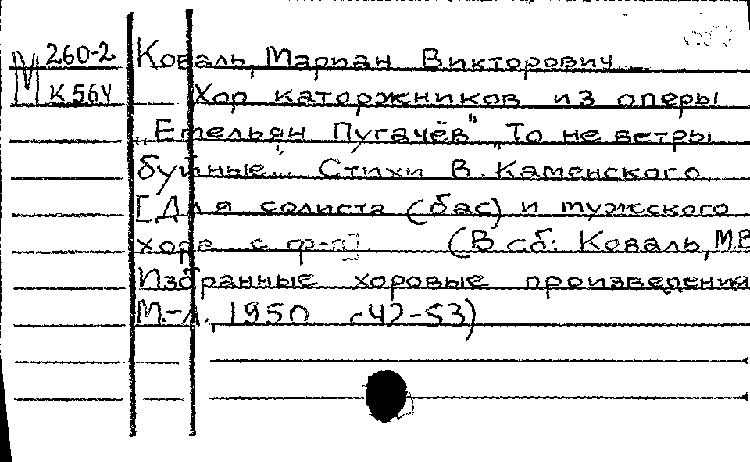 М 260-2 Коваль, Мариан Викторович
К 564 Хор каторжников из оперы
„Емельян Пугачёв" „То не ветры
буйные". Стихи В. Каменского
[Для солиста (бас) и мужского
хора с ф-п]. (В сб: Коваль, М.В
Избранные хоровые произведения
М.-Л., 1950 с42-53)